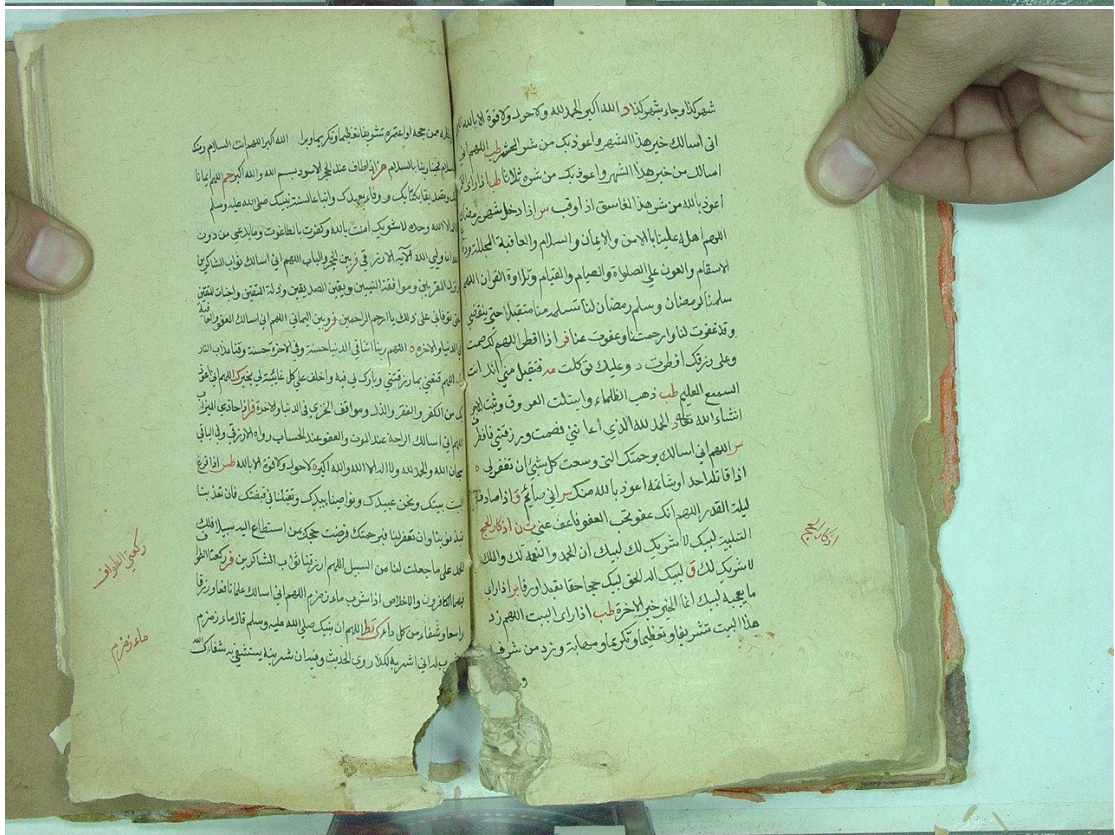 شهر كذا وجاء شهر كذا د الله اكبر الحمد لله ولا حول ولا قوة الا بالله
اني اسالك خير هذا الشهر واعوذ بك من شر المحشر طب اللهم اني
اسالك من خير هذا الشهر واعوذ بك من شره ثلاثا طب اذا راى
أعوذ بالله من شر هذا الغاسق اذا وقب س اذا دخل شهر رمضان
اللهم اهله علينا بالامن والايمان والسلام والعافية المجللة
الاسقام والعون على الصلواة والصيام والقيام وتلاوة القران اللهم
سلمنا لرمضان وسلم رمضان لنا تسلمه منا متقبلا حتى ينقضي
وقد غفرت لنا ورحمتنا وعفوت عنا فر اذا افطر اللهم لك صمت
وعلى رزقك أفطرت د وعليك توكلت مد فتقبل مني انك انت
السميع العليم طب ذهب الظماء وابتلت العروق وثبت الاجر
انشاء الله تعالى الحمد لله الذي أعانني فصمت ورزقني فافطرت
س اللهم اني اسالك برحمتك التي وسعت كل شيئ ان تغفر لي
اذا قاتله احد او شاتمه اعوذ بالله منك س اني صائم ق اذا صادف
ليلة القدر اللهم انك عفو تحب العفو فاعف عني ت ن اذكار الحج
التلبية لبيك لا شريك لك لبيك ان الحمد والنعمة لك والملك
لا شريك لك ق لبيك اله الحق لبيك حجا حقا تعبدا ورقا بر اذا راى
ما يعجبه لبيك انما الخير خير الاخرة طب اذا راى البيت اللهم زد
هذا البيت تشريفا وتعظيما وتكريما ومهابة وزد من شرفه
اذكار الحج
من حجه او اعتمره تشريفا وتعظيما وتكريما وبرا الله اكبر اللهم انت السلام ومنك
السلام فحينا ربنا بالسلام هر اذا طاف عند الحجر الاسود بسم الله والله اكبر حم اللهم ايمانا
بك وتصديقا بكتابك ووفاء بعهدك واتباعا لسنة نبيك صلى الله عليه وسلم
لا اله الا الله وحده لا شريك امنت بالله وكفرت بالطاغوت وما يدعى من دون
الله ان وليي الله الآية الازرقي فر بين الحجر والباب اللهم اني اسالك ثواب الشاكرين
ونزل المقربين وموافقة النبيين ويقين الصديقين وذلة المتقين واخبات الموقنين
حتى توفاني على ذلك يا ارحم الراحمين فر وبين اليماني اللهم اني اسالك العفو والعافية
في الدنيا والاخرة ه اللهم ربنا اتنا في الدنيا حسنة وفي الاخرة حسنة وقنا عذاب النار
اللهم قنعني بما رزقتني وبارك لي فيه واخلف على كل غائبة لي بخير ك اللهم اني اعوذ
بك من الكفر والفقر والذل ومواقف الخزي في الدنيا والاخرة فر اذا حاذي الميزاب
اللهم اني اسالك الراحة عند الموت والعفو عند الحساب رواه الازرقي وفي الباقي
سبحان الله والحمد لله ولا اله الا الله والله اكبر ه لا حول ولا قوة الا بالله طس اذا فرغ
البيت بيتك ونحن عبيدك ونواصينا بيدك وتقلبنا في قبضتك فان تعذبنا
فبذنوبنا وان تغفر لنا فبرحمتك فرضت حجك من استطاع اليه سبيلا فلك
الحمد على ما جعلت لنا من السبيل اللهم ارزقنا ثواب الشاكرين فر ركعتا الطواف
فيهما الكافرون والاخلاص اذا شرب ماء زمزم اللهم اني اسالك علما نافعا ورزقا
واسعا وشفاء من كل داء ك قط اللهم ان نبيك صلى الله عليه وسلم قال ماء زمزم
شرب له اني اشربه لكذا روى الحديث وفيه ان شربته يستشفى به شفاك الله
ركعتي الطواف
ماء زمزم